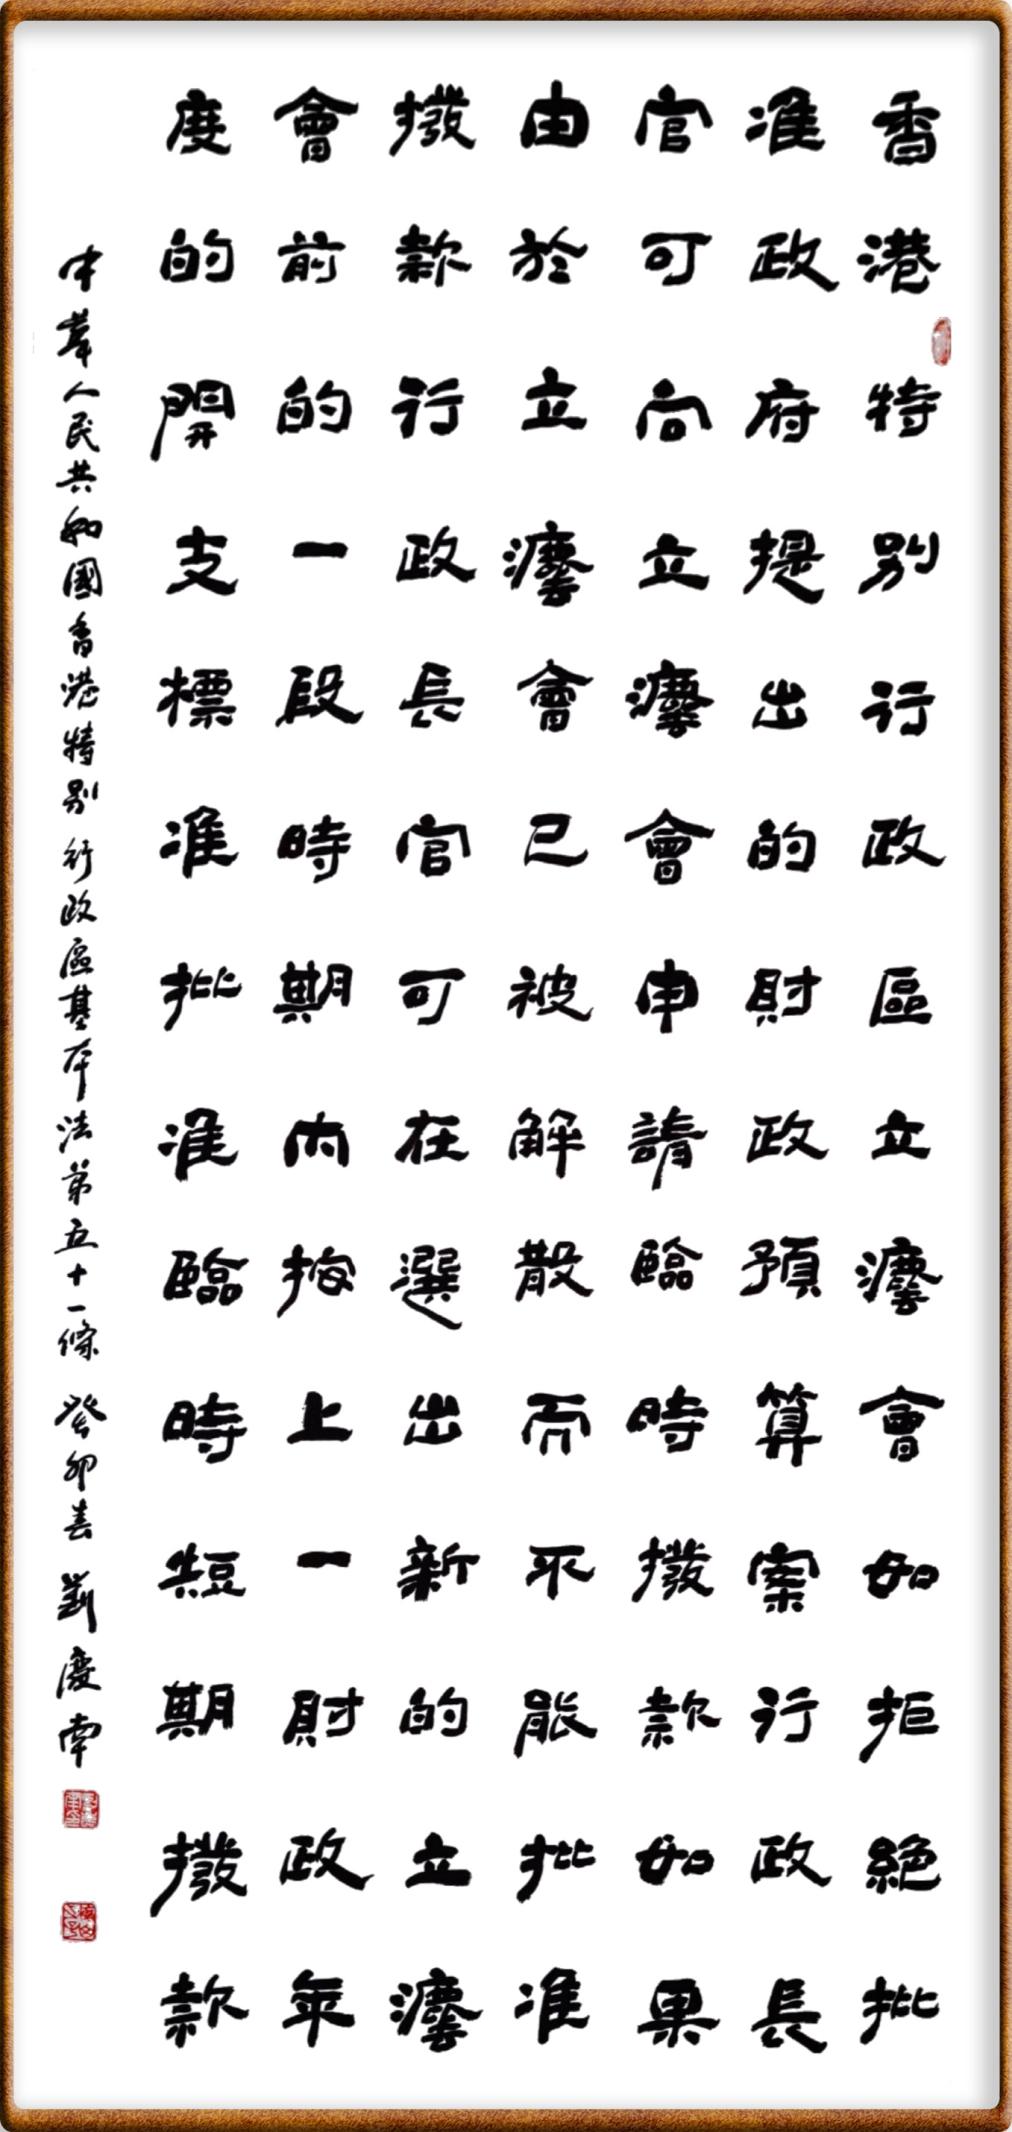 香港特別行政區立灋會如拒絕批
准政府提出的財政預算案行政長
官可向立灋會申請臨時撥款如果
由於立灋會已被解散而不能批准
撥款行政長官可在選出新的立灋
會前的一段時期內按上一財政年
度的開支標准批准臨時短期撥款
中華人民共和國香港特別行政區基本法第五十一條 癸卯春 劉慶南